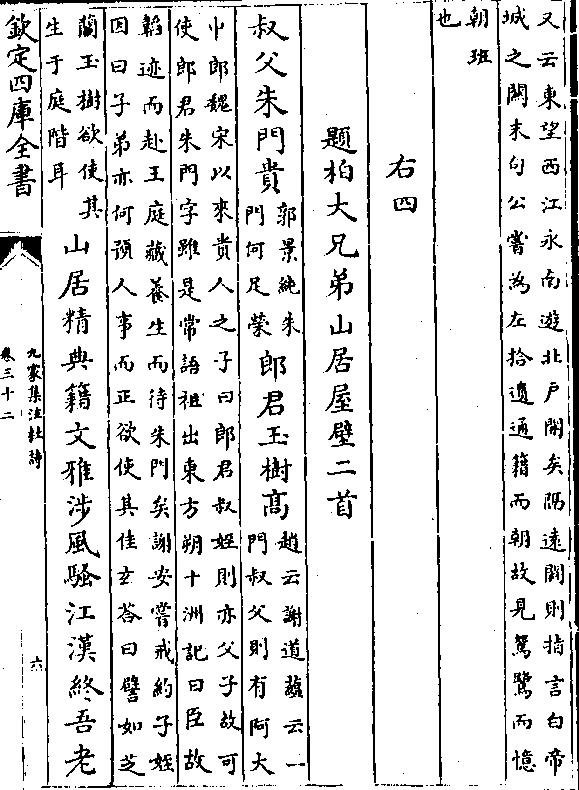 又云東望西江永南遊北戶開矣隔遠闕則指言白帝
城之闕末句公嘗為左拾遺通籍而朝故見鴛鷺而憶
朝班
也
右四
題柏大兄弟山居屋壁二首
叔父朱門貴郭景純朱門何足榮郎君玉樹高趙云謝道蘊云一門叔父則有阿大
中郎魏宋以來貴人之子曰郎君叔姪則亦父子故可
使郎君朱門字雖是常語祖出東方朔十洲記曰臣故
韜迹而赴王庭藏養生而待朱門矣謝安嘗戒約子姪
因曰子弟亦何預人事而正欲使其佳玄荅曰譬如芝
蘭玉樹欲使其生于庭階耳山居精典籍文雅涉風騷江漢終吾老
欽定四庫全書
九家集注杜詩
卷三十二
六